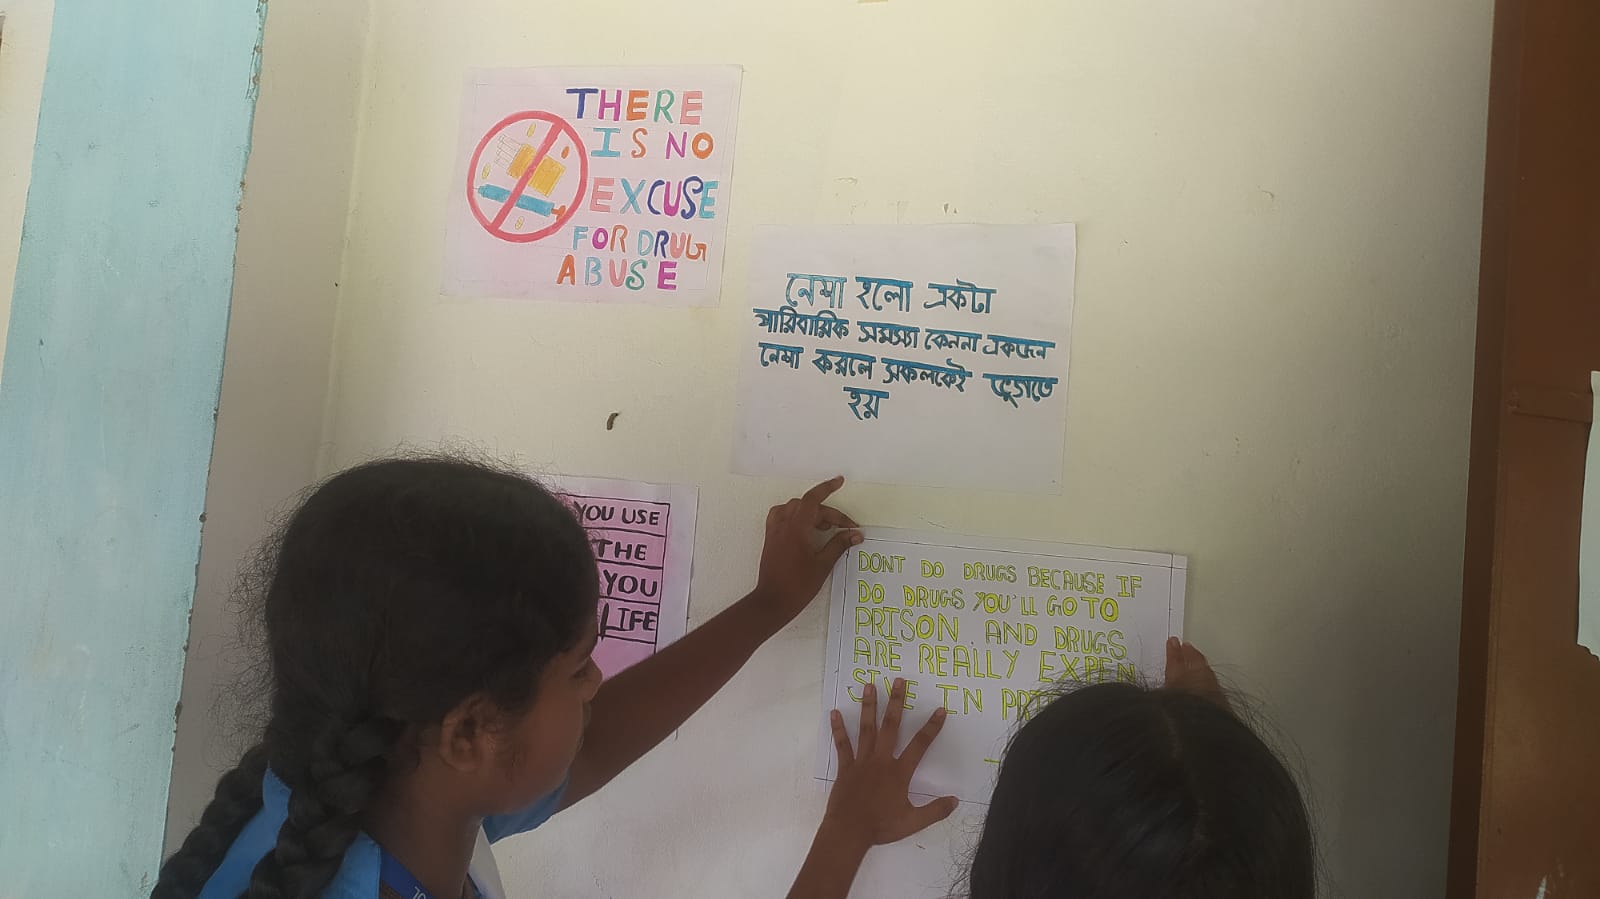 THERE
IS NO
EXCUSE
FOR DRUG
ABUSE
নেশা হলো একটা
পারিবারিক সমস্যা কেননা একজন
নেশা করলে সকলকেই ভুগতে
হয়
YOU USE
THE
YOU
LIFE
DONT DO DRUGS BECAUSE IF
DO DRUGS YOU'LL GO TO
PRISON AND DRUGS
ARE REALLY EXPEN
SIVE IN